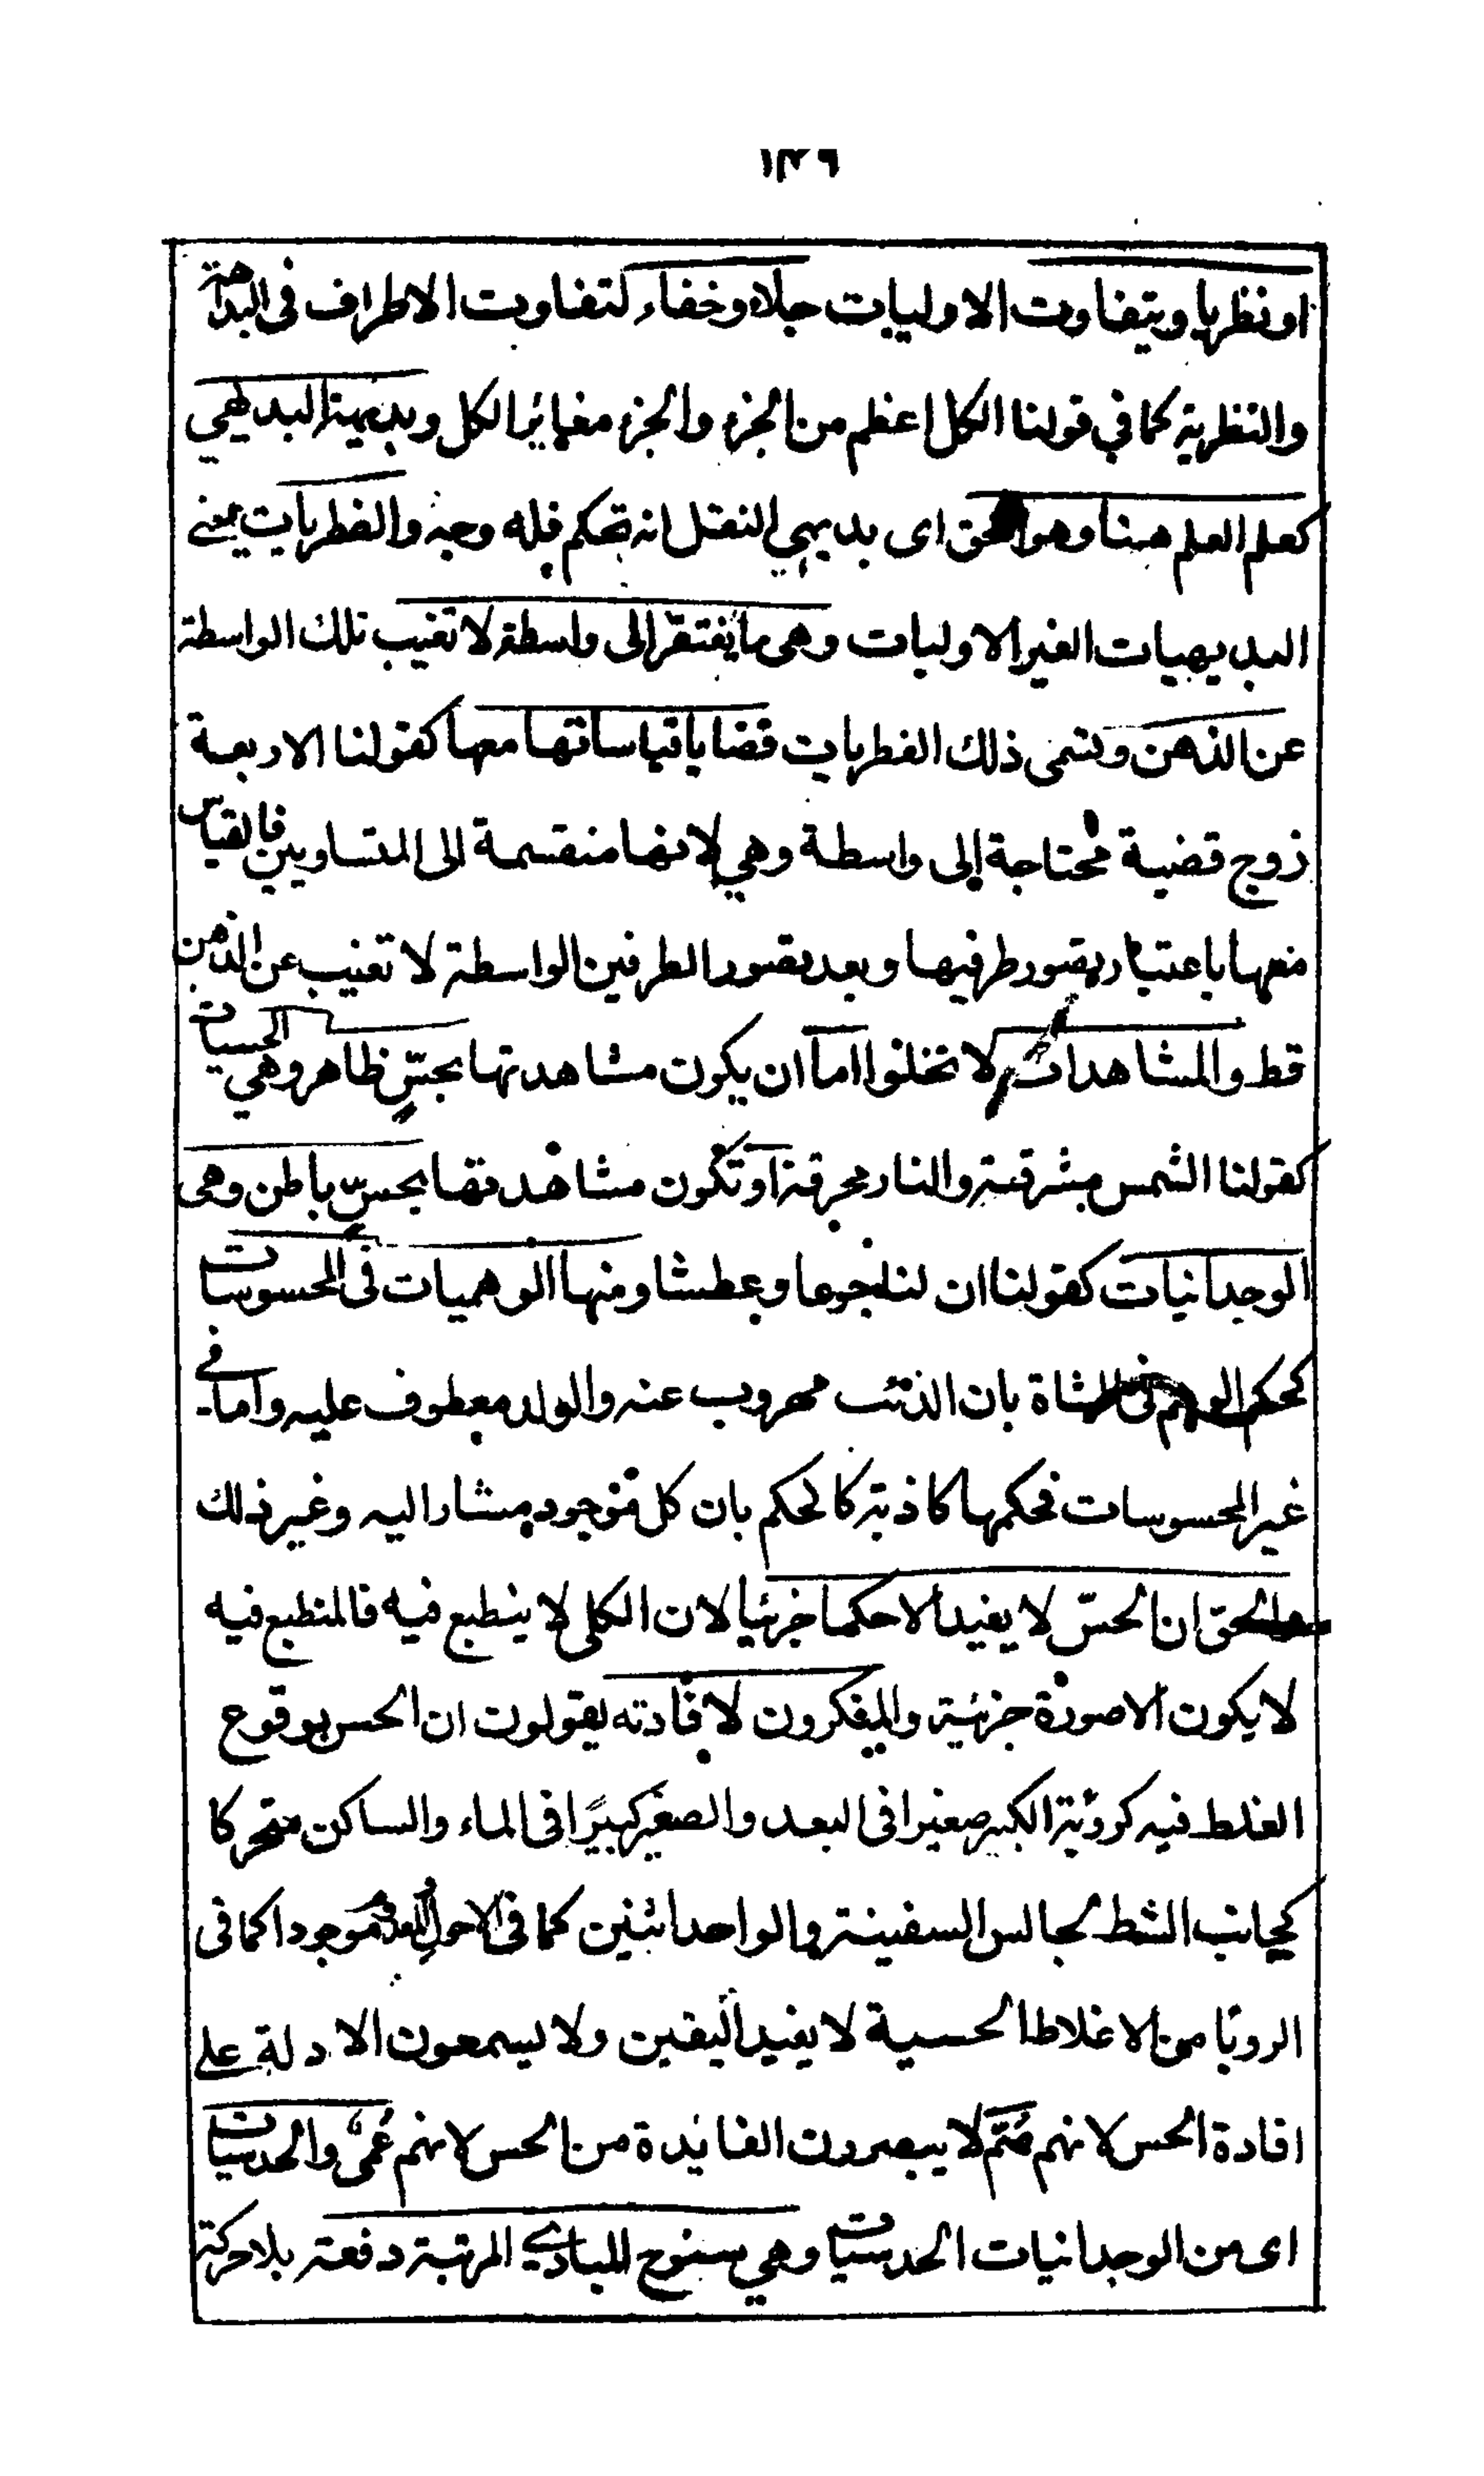 ١٣٦
او نظريا ويتفاوت الاوليات جلاء وخفاء لتفاوت الاطراف فى البداهة
والنظرية كما في قولنا الكل اعظم من الجزء والجزء مغاير الكل وبديهية البديهي
كعلم العلم منا وهو الحق اى بديهي النقل انه تحكم فله وجه والفطريات يعنے
البديهيات الغير الاوليات وهى ما يفتقر الى واسطة لا تغيب تلك الواسطة
عن الذهن وتسمى ذلك الفطريات قضايا قياساتها معها كقولنا الاربعة
زوج قضية محتاجة إلى واسطة وهي لانها منقسمة الى المتساويين فالقياس
معها باعتبار تصور طرفيها وبعد تصور الطرفين الواسطة لا تغيب عن الذهن
قط والمشاهدات لا تخلوا اما ان يكون مشاهدتها بحسّ ظاهر وهي الحسيات
كقولنا الشمس مشرقة والنار محرقة او تكون مشاهدتها بحس باطن وهى
الوجدانيات كقولنا ان لنا جوعا وعطشا ومنها الوهميات فى المحسوسات
كحكم الوهم فى الشاة بان الذئب مهروب عنه والولد معطوف عليه واما في
غير المحسوسات فحكمها كاذبة كالحكم بان كل موجود مشار اليه وغير ذلك
والحق ان الحسّ لا يفيد الا حكما جزئيا لان الكلى لا ينطبع فيه فالمنطبع فيه
لا يكون الا صورة جزئية والمنكرون لافادته يقولون ان الحس بوقوع
الغلط فيه كرؤية الكبير صغيرا فى البعد والصغير كبيرًا فى الماء والساكن متحركا
كجانب الشط لجالس السفينة والواحد اثنين كما فى الاحول والمعدوم موجودا كما فى
الرويا من الاغلاط الحسية لا يفيد اليقين ولا يسمعون الادلة على
افادة الحس لانهم صُمّ لا يبصرون الفايدة من الحس لانهم عُمىٌ والحدسيات
اى من الوجدانيات الحدسيات وهي سنوح المبادي المرتبة دفعة بلا حركة